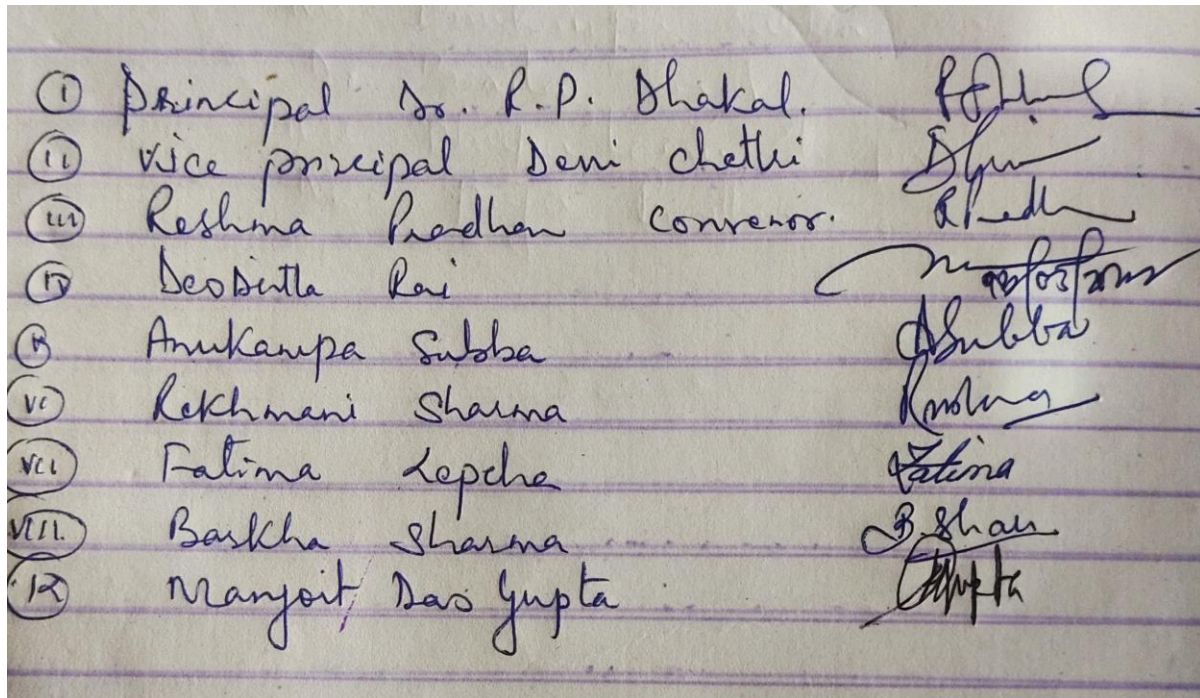 (i) Principal Dr. R.P. Dhakal.
(ii) Vice principal Devi chettri
(iii) Reshma Pradhan Convenor. RPradh
(iv) Rai
(v) Anukampa Subba ASubba
(vi) Rekhmani Sharma
(vii) Fatima Lepcha Fatima
(VIII. Barkha Sharma B. Shar
(ix) Manjoit Das Gupta Gupta